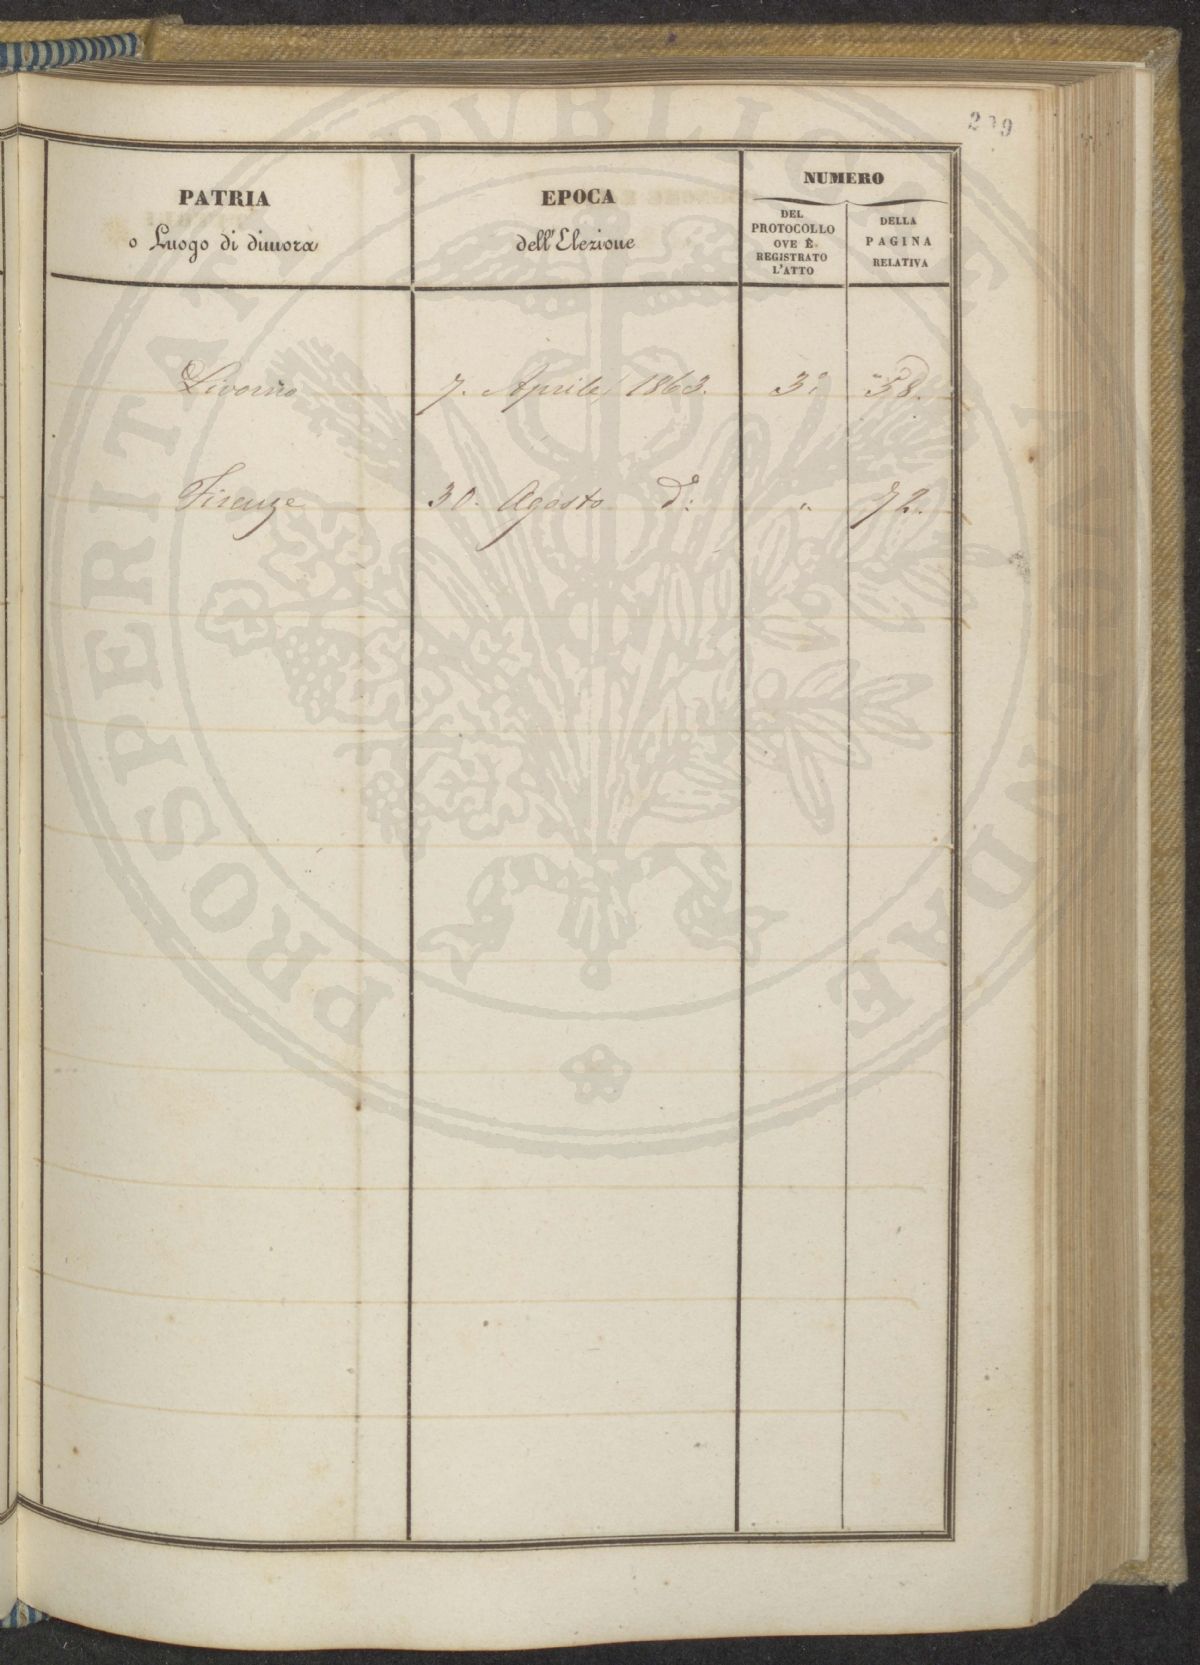 PATRIA
o Luogo di dimora
EPOCA
dell'Elezione
NUMERO
DEL
PROTOCOLLO
OVE È
REGISTRATO
L'ATTO
DELLA
PAGINA
RELATIVA
Livorno 7. Aprile 1863. 3º. 58.
Firenze 30. Agosto dº: " 72.
PROSPERITATI PUBLICAE AUGENDAE